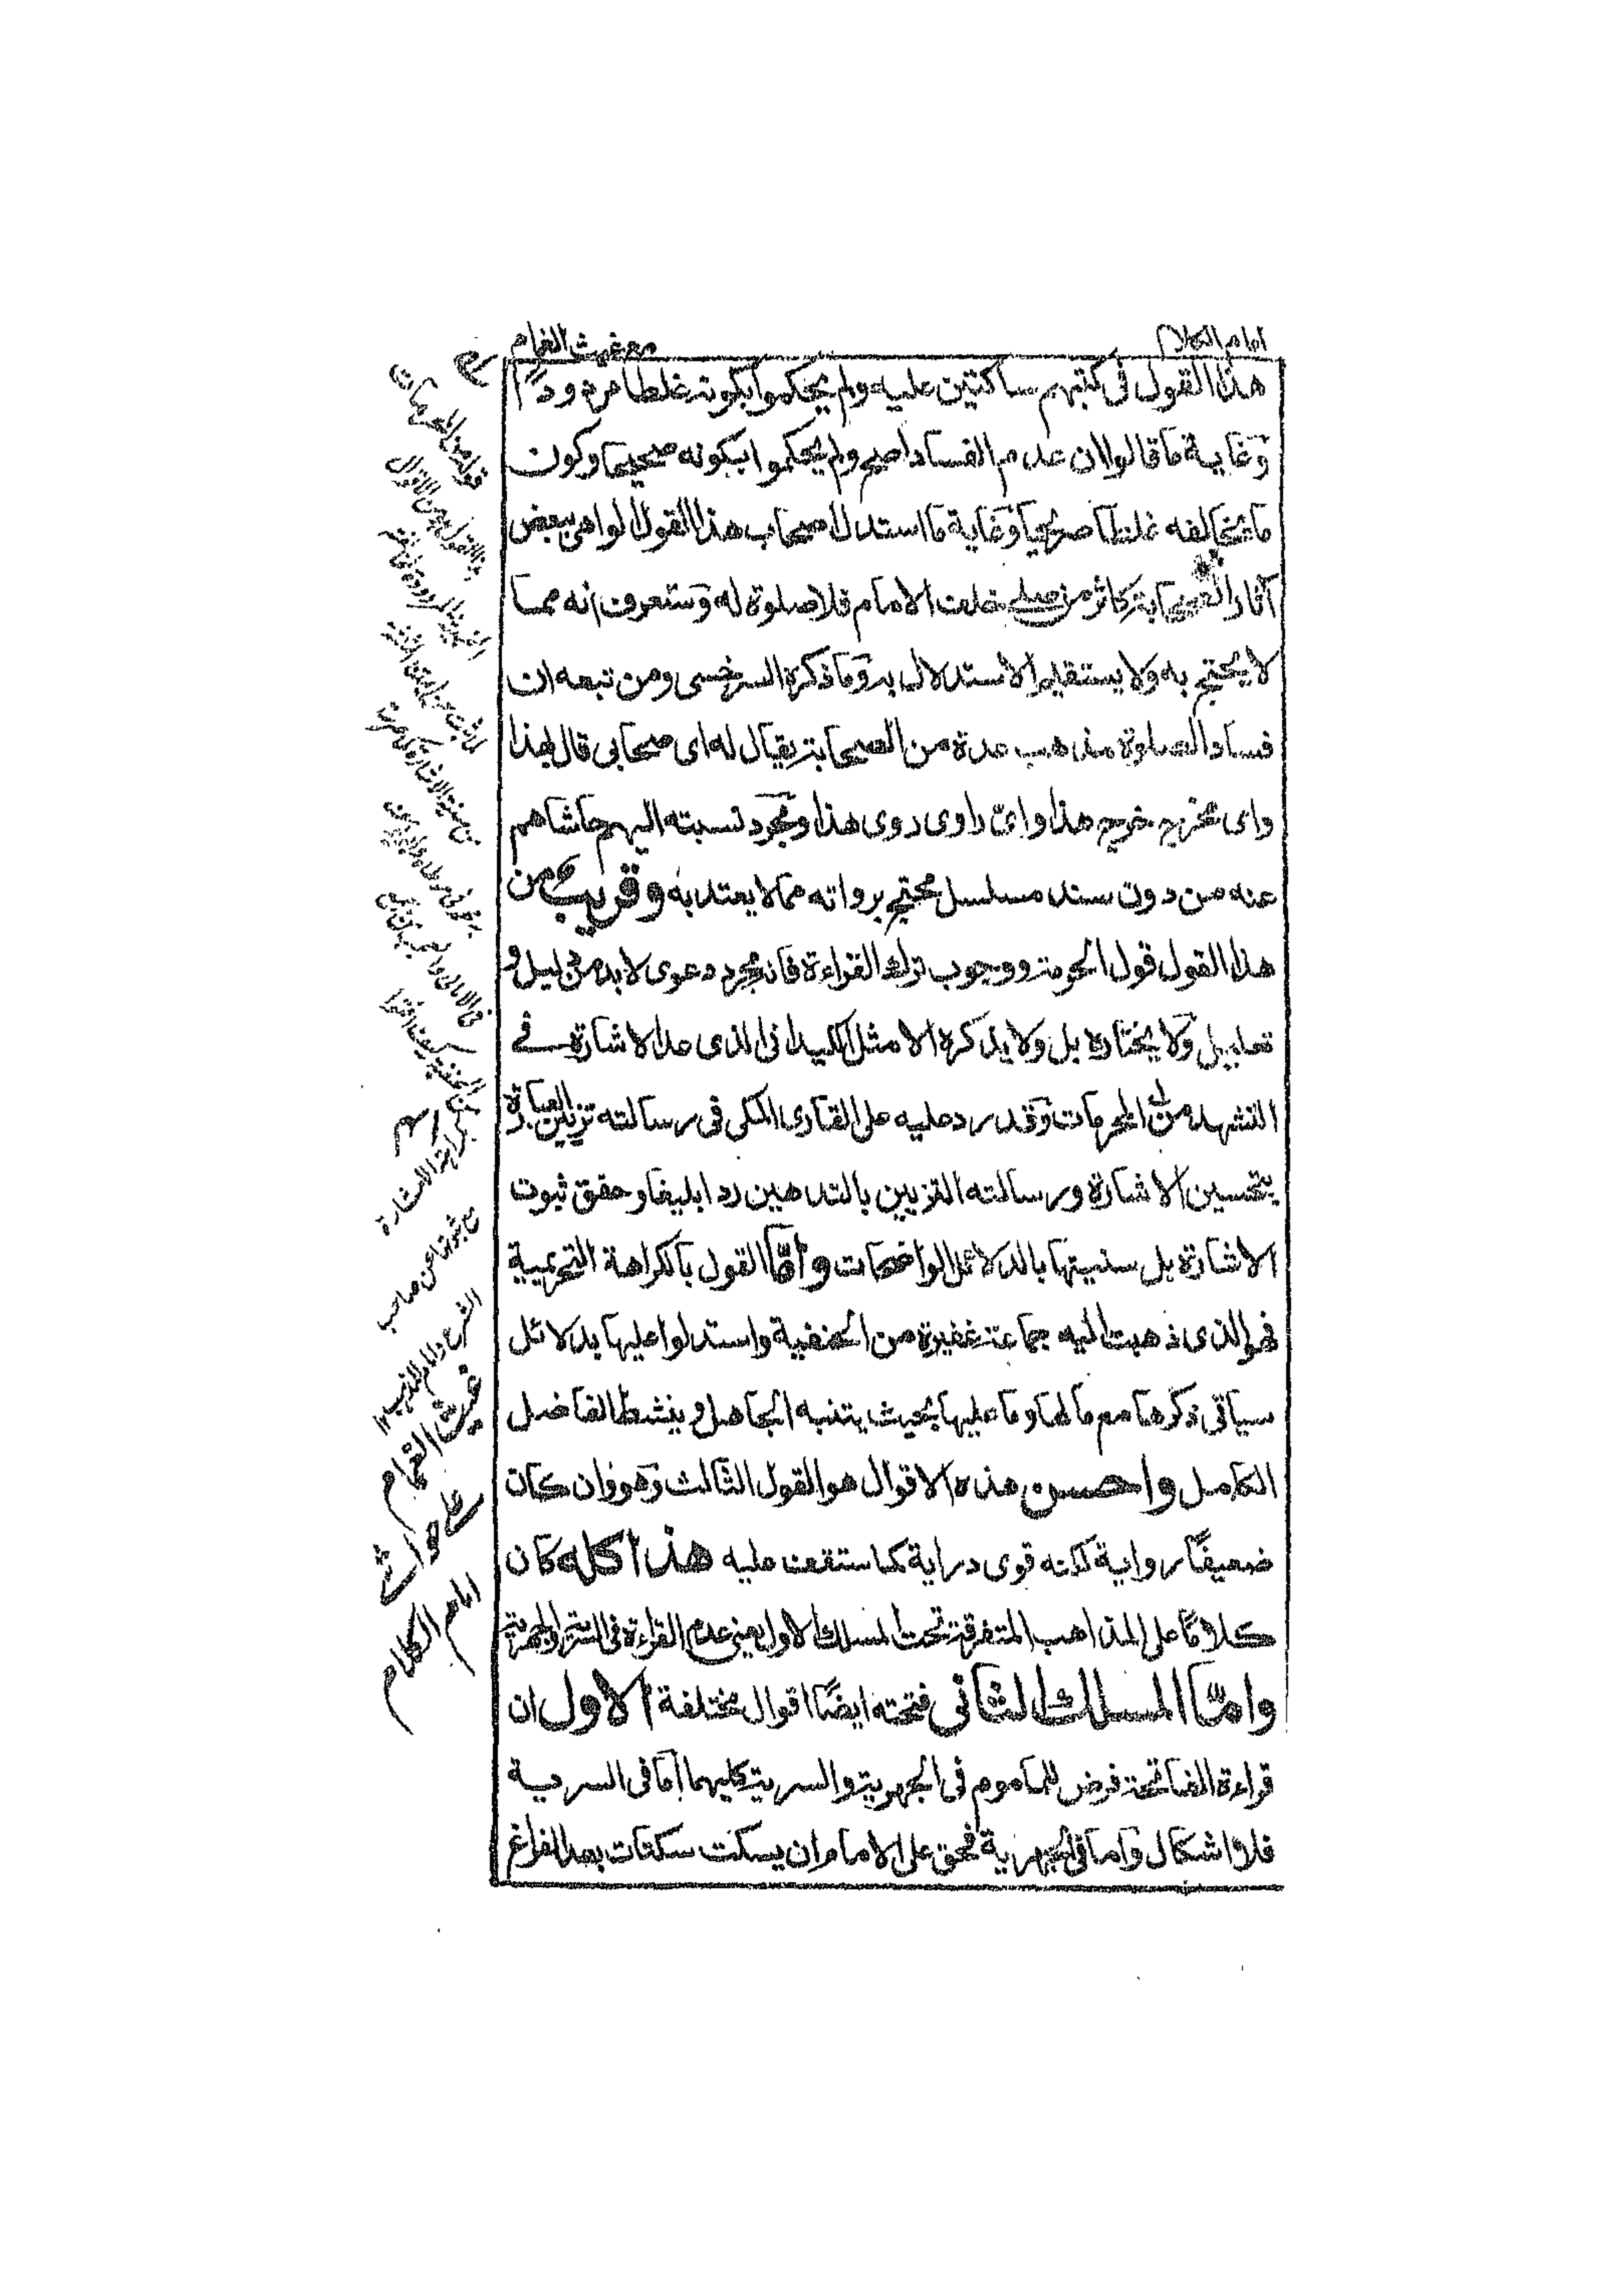 امام الكلام
مع غيث الغمام
هذا القول فى كتبهم ساكتين عليه ولم يحكموا بكونه غلطا مردودًا
وغاية ما قالوا ان عدم الفساد اصح ولم يحكموا بكونه صحيحا وكون
ما يخالفه غلطا صريحا وغاية ما استدل اصحاب هذا القول الواهى ببعض
آثار الصحابة كاثر من صلى خلف الامام فلا صلوة له وستعرف انه مما
لا يحتج به ولا يستقيم الاستدلال به وما ذكره السرخسى ومن تبعه ان
فساد الصلوة مذهب عدة من الصحابة يقال له اى صحابى قال بهذا
واى مخرج خرج هذا واىّ راوى روى هذا ومجرد نسبته اليهم حاشاهم
عنه من دون سند مسلسل محتج برواته مما لا يعتد به وقريب من
هذا القول قول الحرمة ووجوب ترك القراءة فانه مجرد دعوى لا بد من دليل و
تعليل ولا يختاره بل ولا يذكره الا مثل الكيدانى الذى عد الاشارة فى
التشهد من المحرمات وقد رد عليه على القارى المكى فى رسالته تزيين العبارة
بتحسين الاشارة ورسالته التزيين بالتدهين ردا بليغا وحقق ثبوت
الاشارة بل سنيتها بالدلائل الواضحات وامّا القول بالكراهة التحريمية
فهو الذى ذهبت اليه جماعة غفيرة من الحنفية واستدلوا عليها بدلائل
سياتى ذكرها مع ما لها وما عليها بحيث يتنبه الجاهل وينشط الفاضل
الكامل واحسن هذه الاقوال هو القول الثالث وهو وان كان
ضعيفًا رواية لكنه قوى دراية كما ستقف عليه هذا كله كان
كلامًا على المذاهب المتفرقة تحت المسلك الاول يعنى عدم القراءة فى السرية والجهرية
وامّا المسلك الثانى فتحته ايضًا اقوال مختلفة الاول ان
قراءة الفاتحة فرض للماموم فى الجهرية والسرية كليهما اما فى السرية
فلا اشكال واما فى الجهرية فحق على الامام ان يسكت سكتات بعد الفراغ
بكراهة الاشارة
مع ثبوتها عن صاحب
الشرع وامام المذهب ١٢
غيث الغمام
على حواشى
امام الكلام